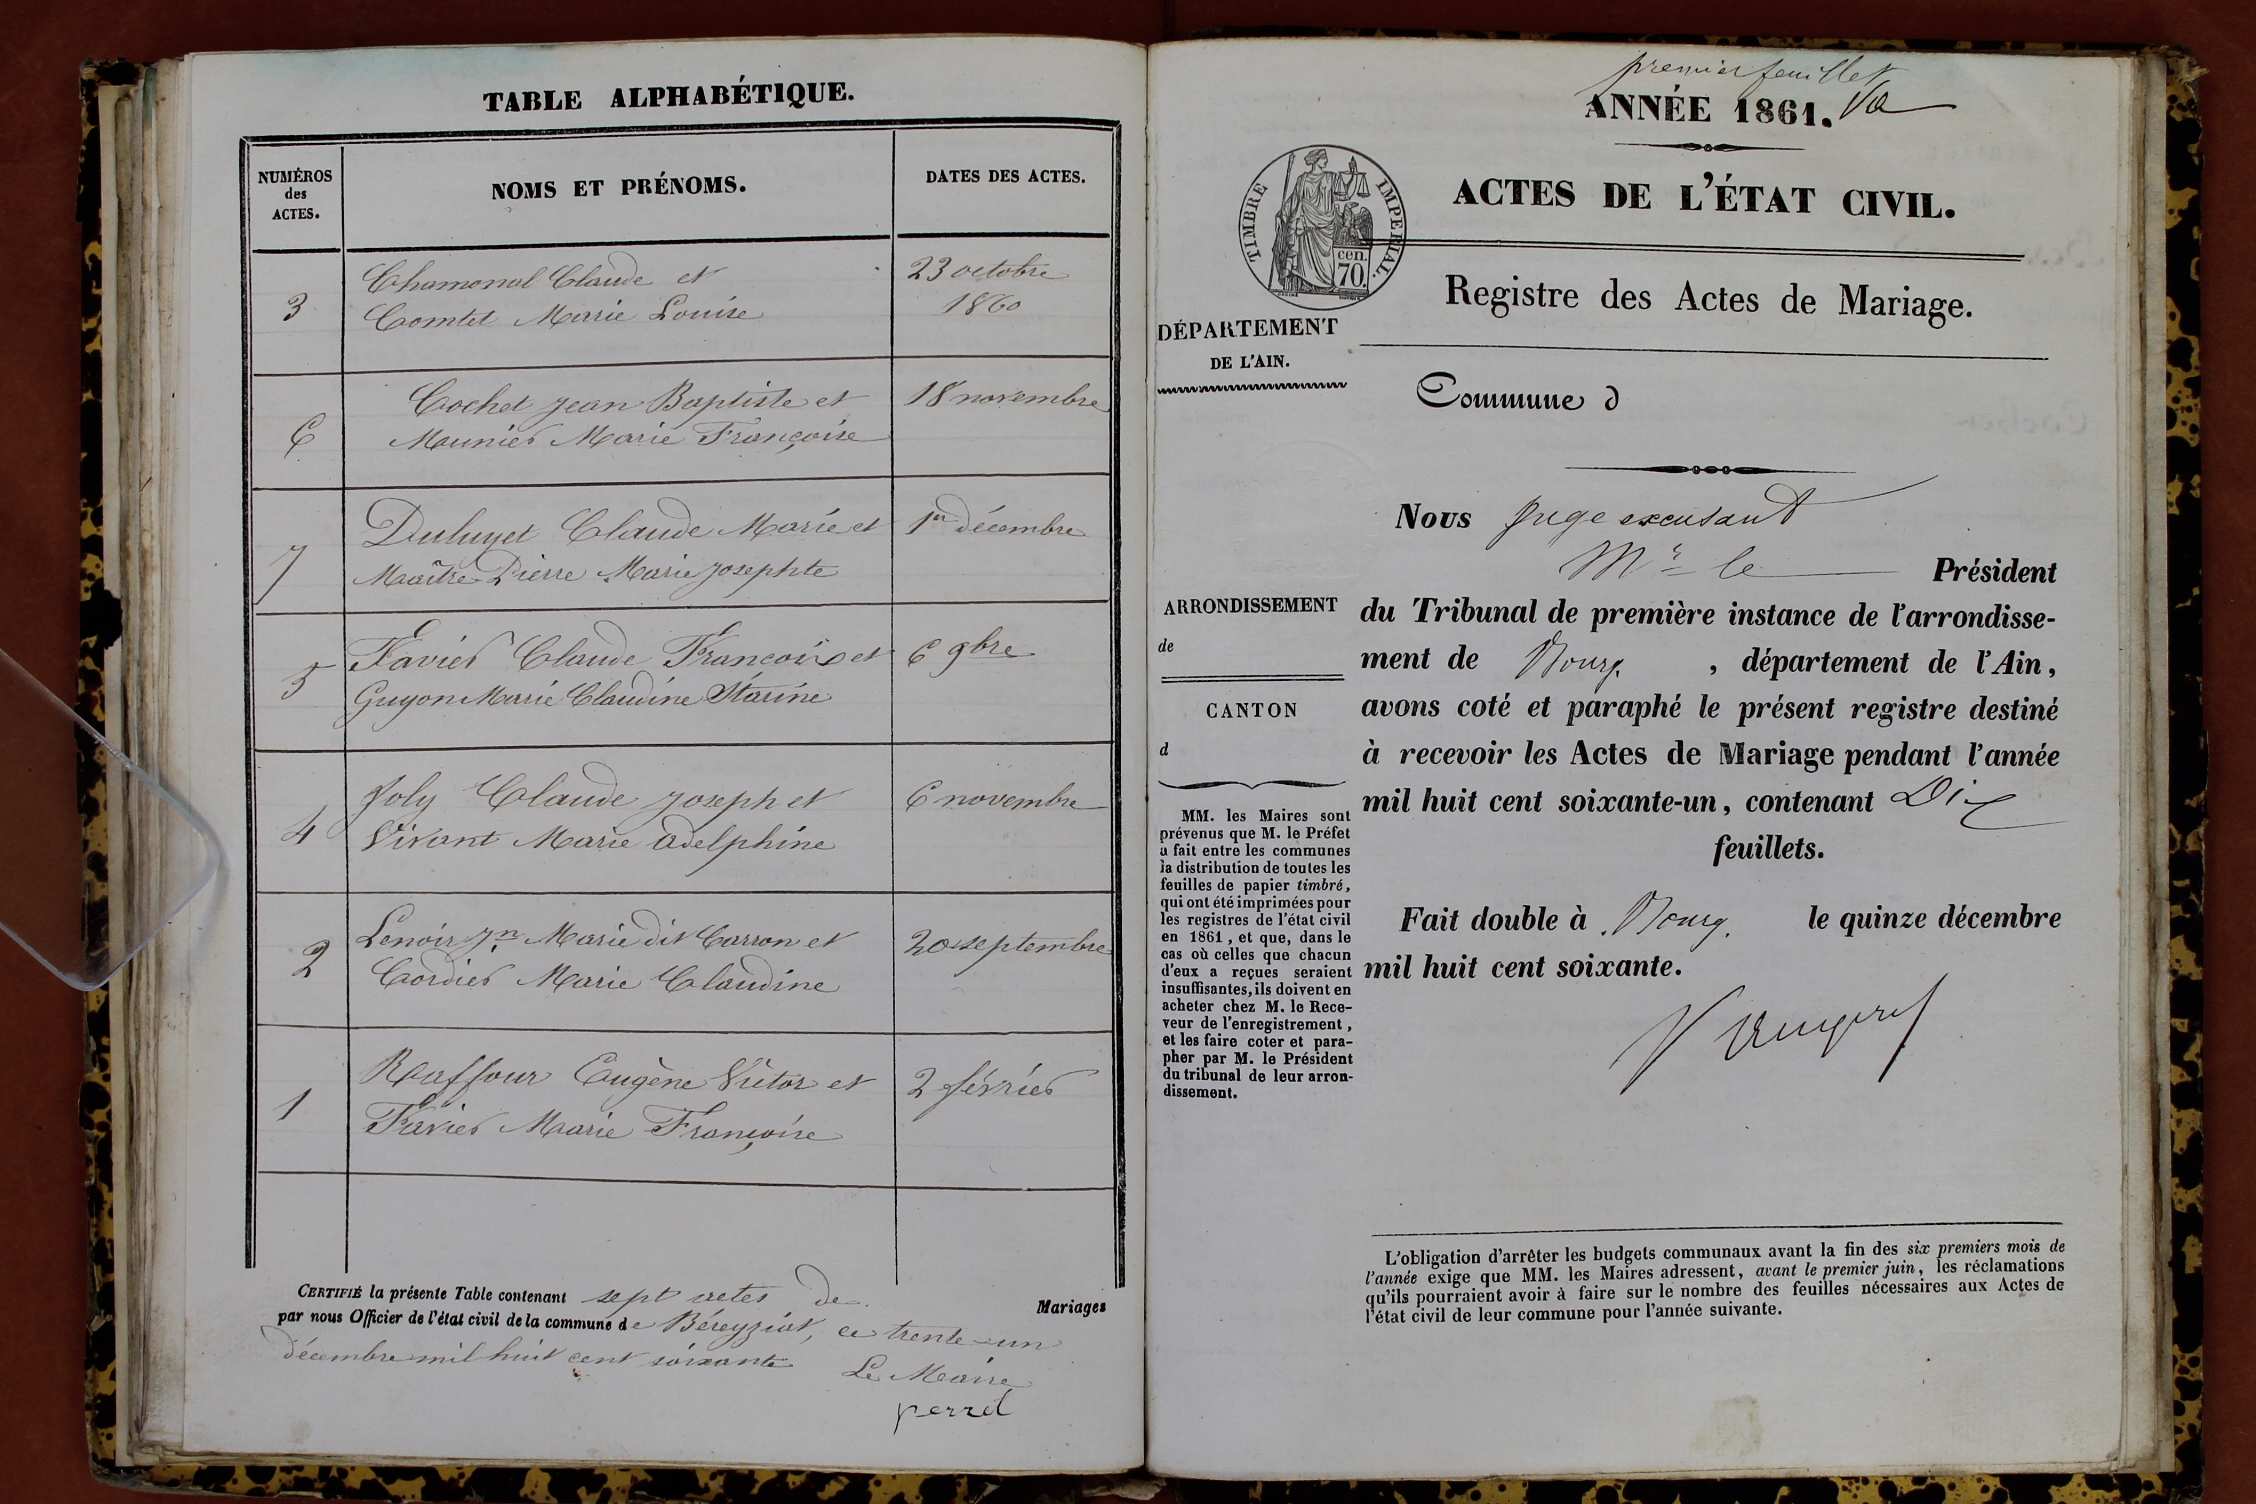 TABLE ALPHABÉTIQUE.
NUMÉROS
des
ACTES.
NOMS ET PRÉNOMS.
DATES DES ACTES.
3
Chamonal Claude et
Comtet Marie Louise
23 octobre
1860
6
Cochet Jean Baptiste et
Meunier Marie Françoise
18 novembre
7
Duluyet Claude Marie et
Maître Pierre Marie Josephte
1er décembre
5
Favier Claude François et
Guyon Marie Claudine Starine
6 9bre
4
Joly Claude Joseph et
Vivant Marie adelphine
6 novembre
2
Lenoir Jn Marie dit Carron et
Cordier Marie Claudine
20 septembre
1
Raffour Eugène Victor et
Favier Marie Françoise
2 février
CERTIFIÉ la présente Table contenant sept actes de Mariages
par nous Officier de l'état civil de la commune de Béreyziat, ce trente-un
décembre mil huit cent soixante
Le Maire
perret
premier feuillet
ANNÉE 1861.
ACTES DE L'ÉTAT CIVIL.
TIMBRE IMPERIAL.
70 cen.
Registre des Actes de Mariage.
DÉPARTEMENT
DE L'AIN.
Commune d
Nous juge excusant
Mr le Président
ARRONDISSEMENT
de
CANTON
d
du Tribunal de première instance de l'arrondisse-
ment de Bourg, département de l'Ain,
avons coté et paraphé le présent registre destiné
à recevoir les Actes de Mariage pendant l'année
mil huit cent soixante-un, contenant Dix
feuillets.
Fait double à Bourg. le quinze décembre
mil huit cent soixante.
MM. les Maires sont
prévenus que M. le Préfet
a fait entre les communes
la distribution de toutes les
feuilles de papier timbré,
qui ont été imprimées pour
les registres de l'état civil
en 1861, et que, dans le
cas où celles que chacun
d'eux a reçues seraient
insuffisantes, ils doivent en
acheter chez M. le Rece-
veur de l'enregistrement,
et les faire coter et para-
pher par M. le Président
du tribunal de leur arron-
dissement.
L'obligation d'arrêter les budgets communaux avant la fin des six premiers mois de
l'année exige que MM. les Maires adressent, avant le premier juin, les réclamations
qu'ils pourraient avoir à faire sur le nombre des feuilles nécessaires aux Actes de
l'état civil de leur commune pour l'année suivante.